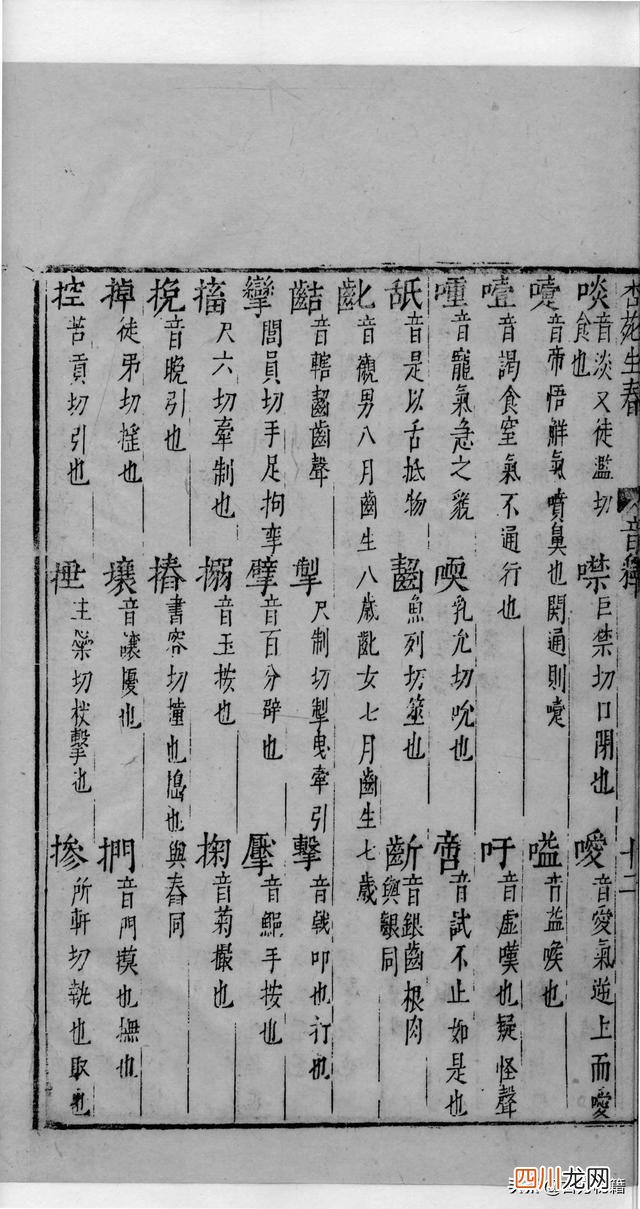 杏苑生春 音釋 十二
啖 音淡又徒濫切食也 噤 巨禁切口閉也 噯 音愛氣逆上而噯
嚏 音帝悟解氣噴鼻也開通則嚏 嗌 音益喉也
噎 音謁食窒氣不通行也 吁 音虛嘆也疑怪聲
喠 音寵氣急之貌 㖭 乳允切吮也 啻 音試不止如是也
舐 音是以舌抵物 齧 魚列切噬也 齗 音銀齒根肉與齦同
齔 音襯男八月齒生八歲齔女七月齒生七歲
齰 音轄齧齒聲 掣 尺制切掣曳牽引 擊 音戟叩也打也
攣 閭員切手足拘攣 擘 音百分擘也 壓 手按也
搐 尺六切牽制也 搦 音玉按也 掬 音菊撮也
挽 音晚引也 摏 書容切撞也搗也與舂同
掉 徒弔切搖也 攘 音讓擾也 捫 音門摸也撫也
控 苦貢切引也 捶 主蘂切杖擊也 摻 所軒切執也取也
四川龙网